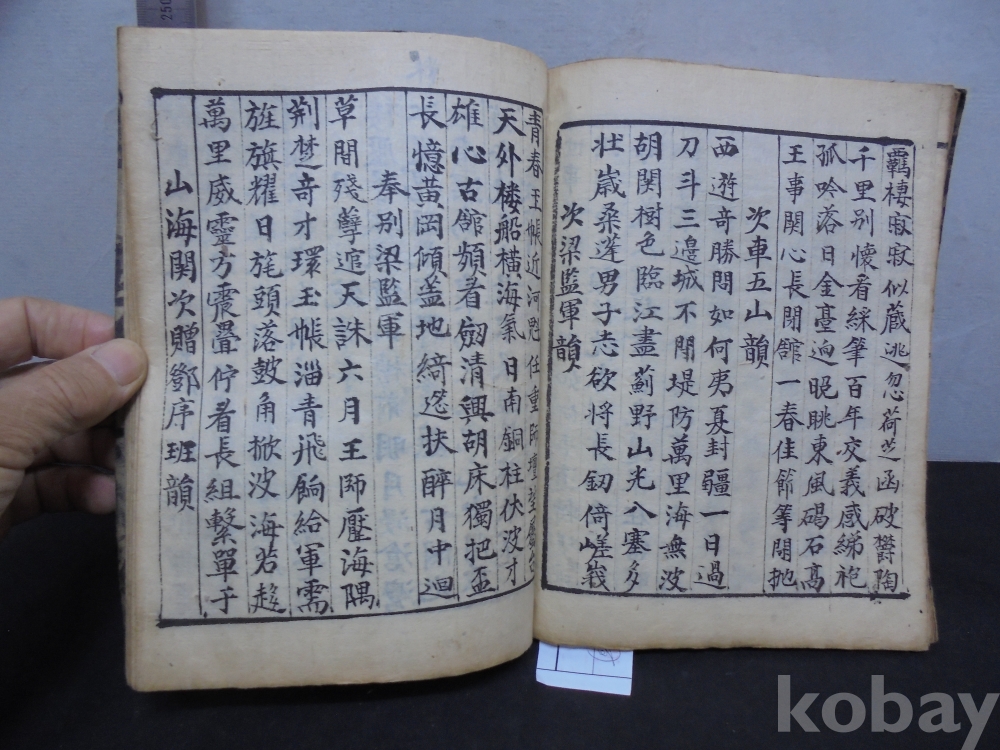 羈棲寂寂似藏逃忽荷芝函破欝陶
千里别懷看綵筆百年交義感綈袍
孤吟落日金臺逈晩眺東風碣石高
王事関心長閉舘一春佳節等閒抛
次車五山韻
西遊竒勝問如何夷夏封疆一日過
刀斗三邊城不閉堤防萬里海無波
胡関樹色臨江盡薊野山光入塞多
壮歳桑蓬男子志欲将長釼倚嵯峩
次梁監軍韻
青春玉帳近河魁任重師壇
天外楼船横海氣日南銅柱伏波才
雄心古舘頻看劔清興胡床獨把盃
長憶黄岡傾盖地綺筵扶醉月中迴
奉别梁監軍
草間殘孽逭天誅六月王師壓海隅
荆楚竒才環玉帳淄青飛餉給軍需
旌旗耀日旄頭落皷角掀波海若趍
萬里威靈方震疊佇看長組繫單于
山海関次贈鄧序班韻
250
kobay